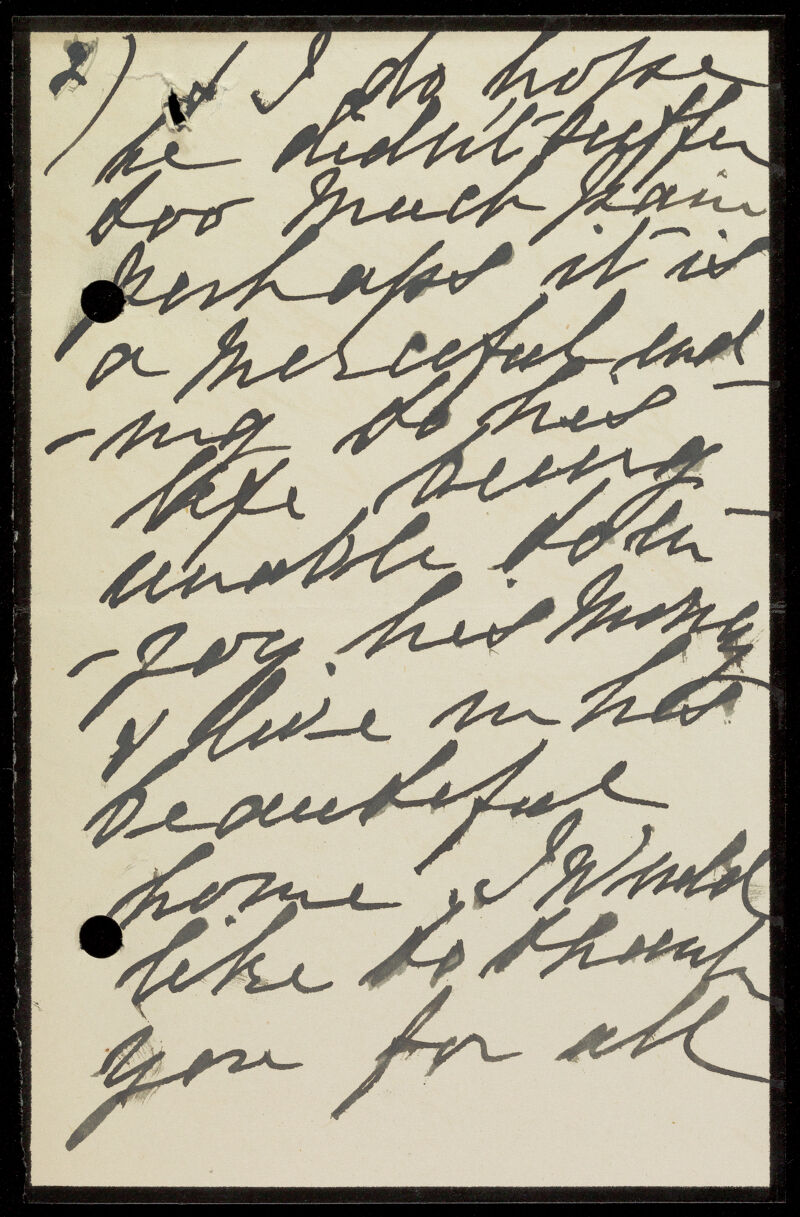 2) & I do hope
he didn't suffer
too much pain
perhaps it is
a merciful end
-ing to his -
life being
unable to en -
-joy his money
& live in his
beautiful
home. I would
like to thank
you for all